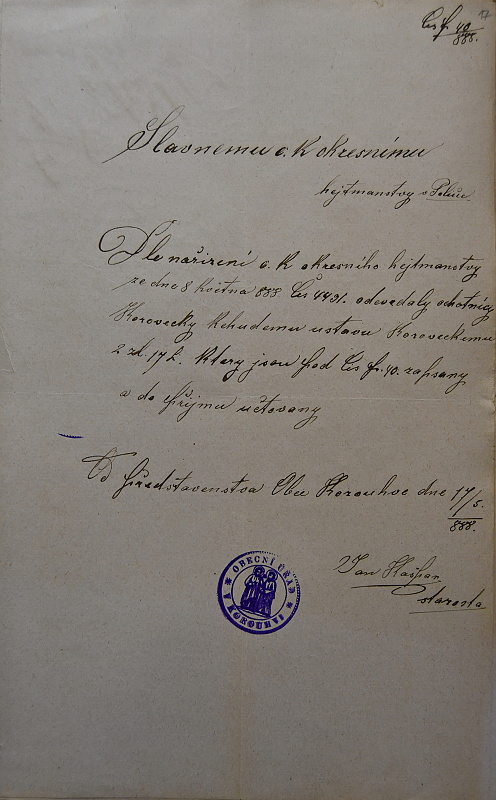 17
Čis Pr. 40/888.
Slavnemu c. k okresnímu
hejtmanstvy v Poličce.
Dle nařízení c. k okresního hejtmanstvy
ze dne 8 května 888 Čís 4491. odevedaly ochotníci
Korovecky k chudemu ustavu Koroveckemu
2 zl. 17 k. ktery jsou pod Čis Pr. 40. zapsany
a do přijmu učtovany
Od Představenstva Obce Korouhve dne 17/5.
888.
Jan
starosta
OBECNÍ ÚŘAD
V KOROUHVI